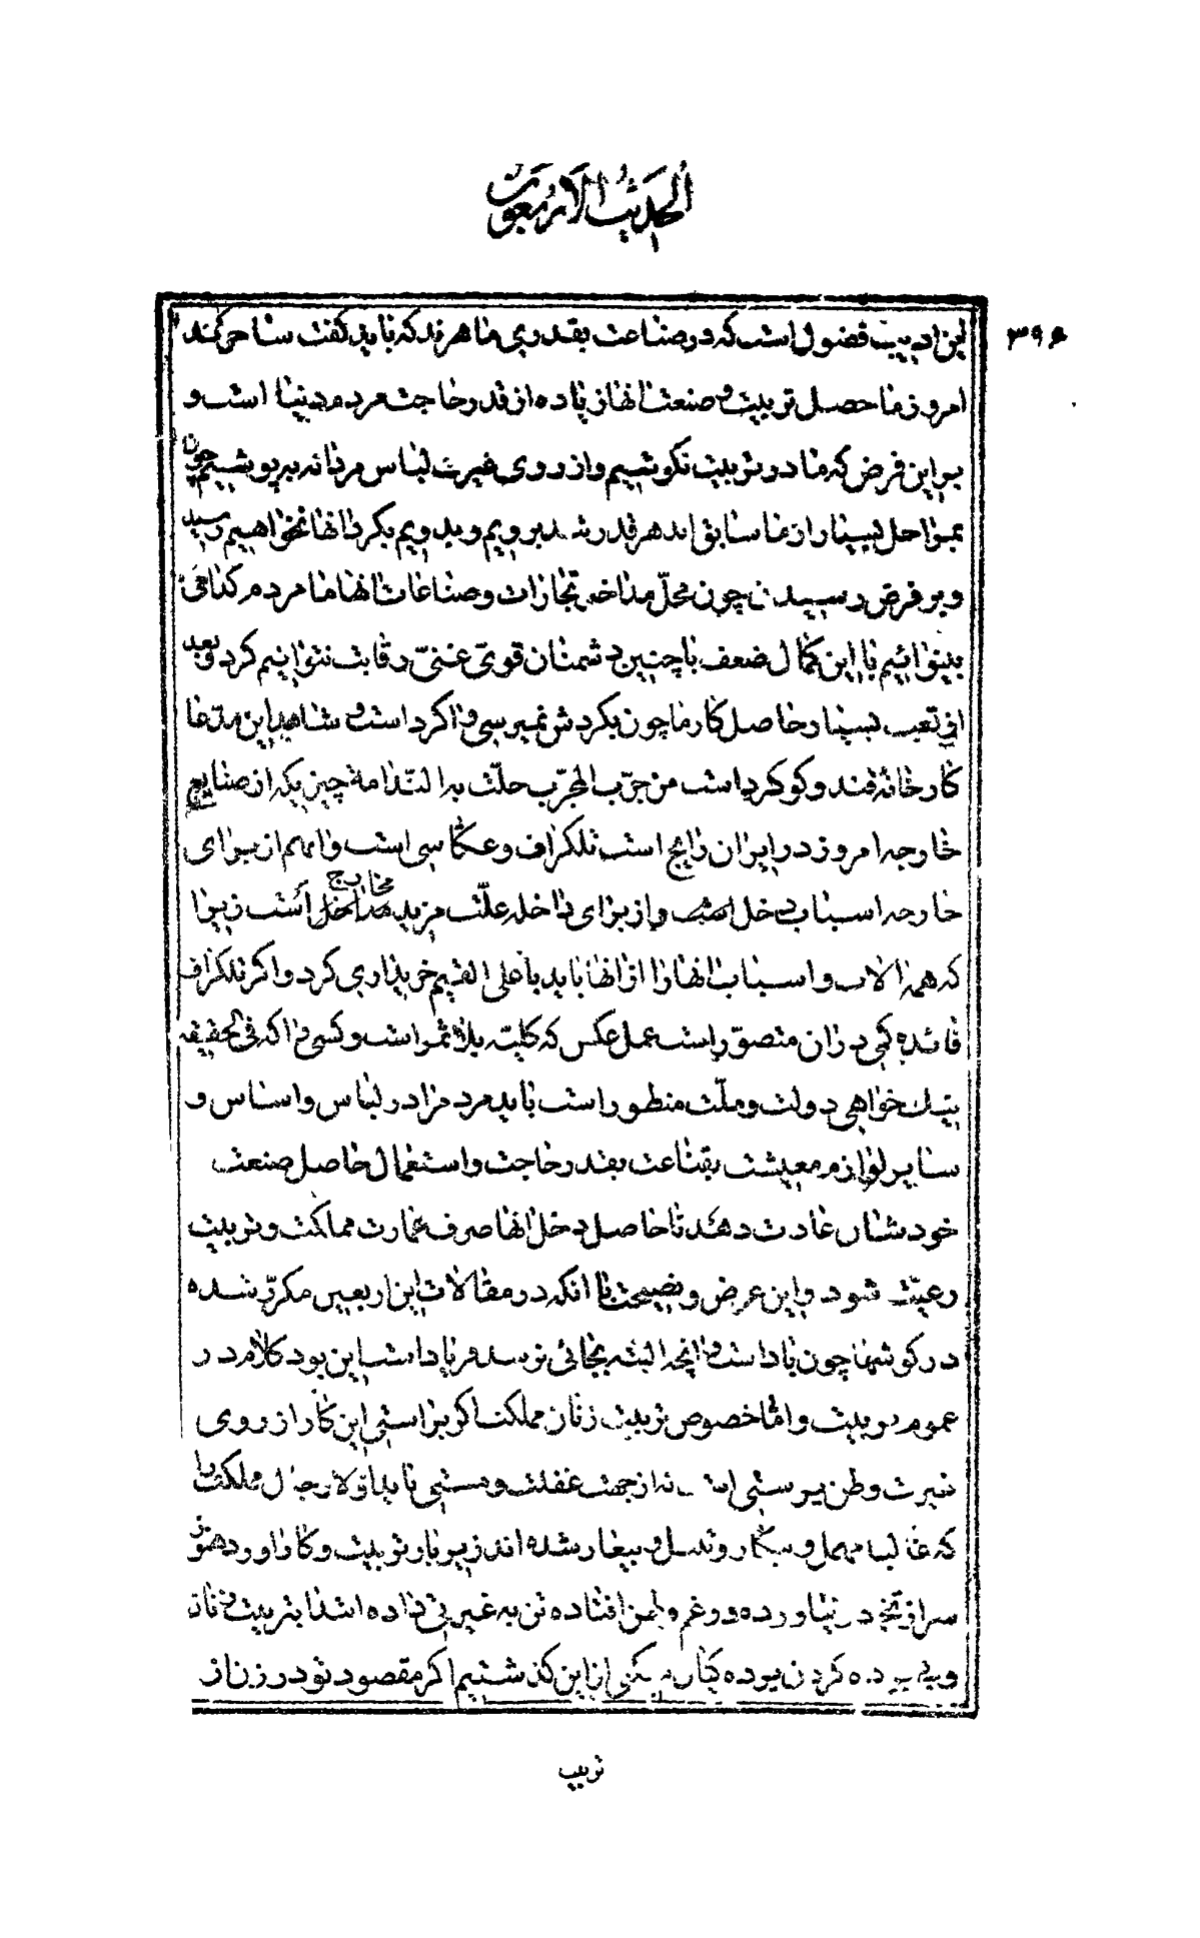 الحدیث الاربعون
۳۹۶
این ادبیت فضول است که در صناعت بقدری ماهرند که باید گفت ساحری کنند
امروز ما حصل تربیت و صنعت انها زیاده از قدر حاجت مردم دنیا است و
بر این فرض که ما در تربیت نکوشیم و از روی غیرت لباس مردانه بپوشیم چون
بمراحل بسیار از ما سابق اند هر قدر برویم و بدویم بکرد انها نخواهیم رسید
و بر فرض رسیدن چون محل مداخل تجارات و صناعات انها ما مردم کدای
بینوائیم با این کمال ضعف با چنین دشمنان قوی غنی رقابت نتوانیم کرد و بعد
از تعب بسیار حاصل کار ما چون بکردش نمیرسی واکرد است و شاهد این مدعا
کارخانه قند و کوکرد است من جرب المجرب حلت به الندامة چیزیکه از صنایع
خارجه امروز در ایران رایج است تلکراف و عکاسی است و انهم از برای
خارجه اسباب دخل است و از برای داخله علت مزید مخارج است زیرا
که همه الات و اسباب انها را از انها باید با علی القیم خریداری کرد و اکر تلکراف
فائده کمی در ان متصور است عمل عکس که کلیة بلا ثمر است و کسی را که فی الحقیقه
نیک خواهی دولت و ملت منظور است باید مردم را در لباس و اساس و
سایر لوازم معیشت بقناعت بقدر حاجت و استعمال حاصل صنعت
خودشان عادت دهد تا حاصل دخل انها صرف عمارت مملکت و تربیت
رعیت شود و این عرض و نصیحت با انکه در مقالات این اربعین مکرر شده
در کوشها چون باد است و انچه البته بجائی نرسد فریاد است این بود کلام در
عموم تربیت و اما خصوص تربیت زنان مملکت اکر براستی این کار از روی
غیرت و وطن پرستی است نه از جهت غفلت و مستی باید اولا رجال مملکت را
که غالبا مهمل و بیکار و تنبل و بیعار شده اند زیر بار تربیت و کار اورد هنوز
سر از یخ در نیاورده و غم وطن افتاده تن به غیرتی نداده ابتدا بتربیت زنان
و بی پرده کردن پرده کیان میکنی از این کذشتیم اکر مقصود تو در زن از
تربیت